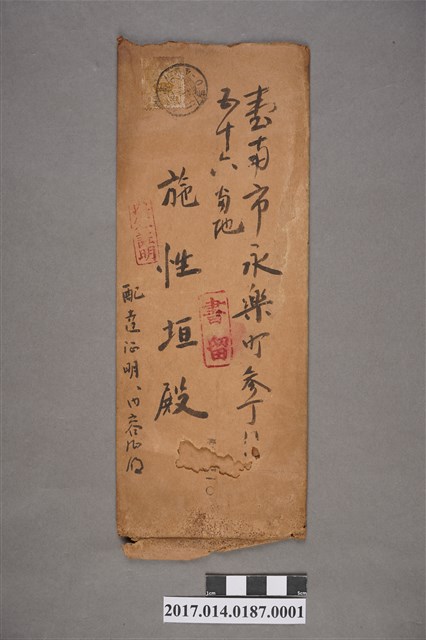 臺南市永樂町參丁目
五十六番地
施性垣殿
書留
證明
配達証明、内容証明
1cm 5cm
2017.014.0187.0001